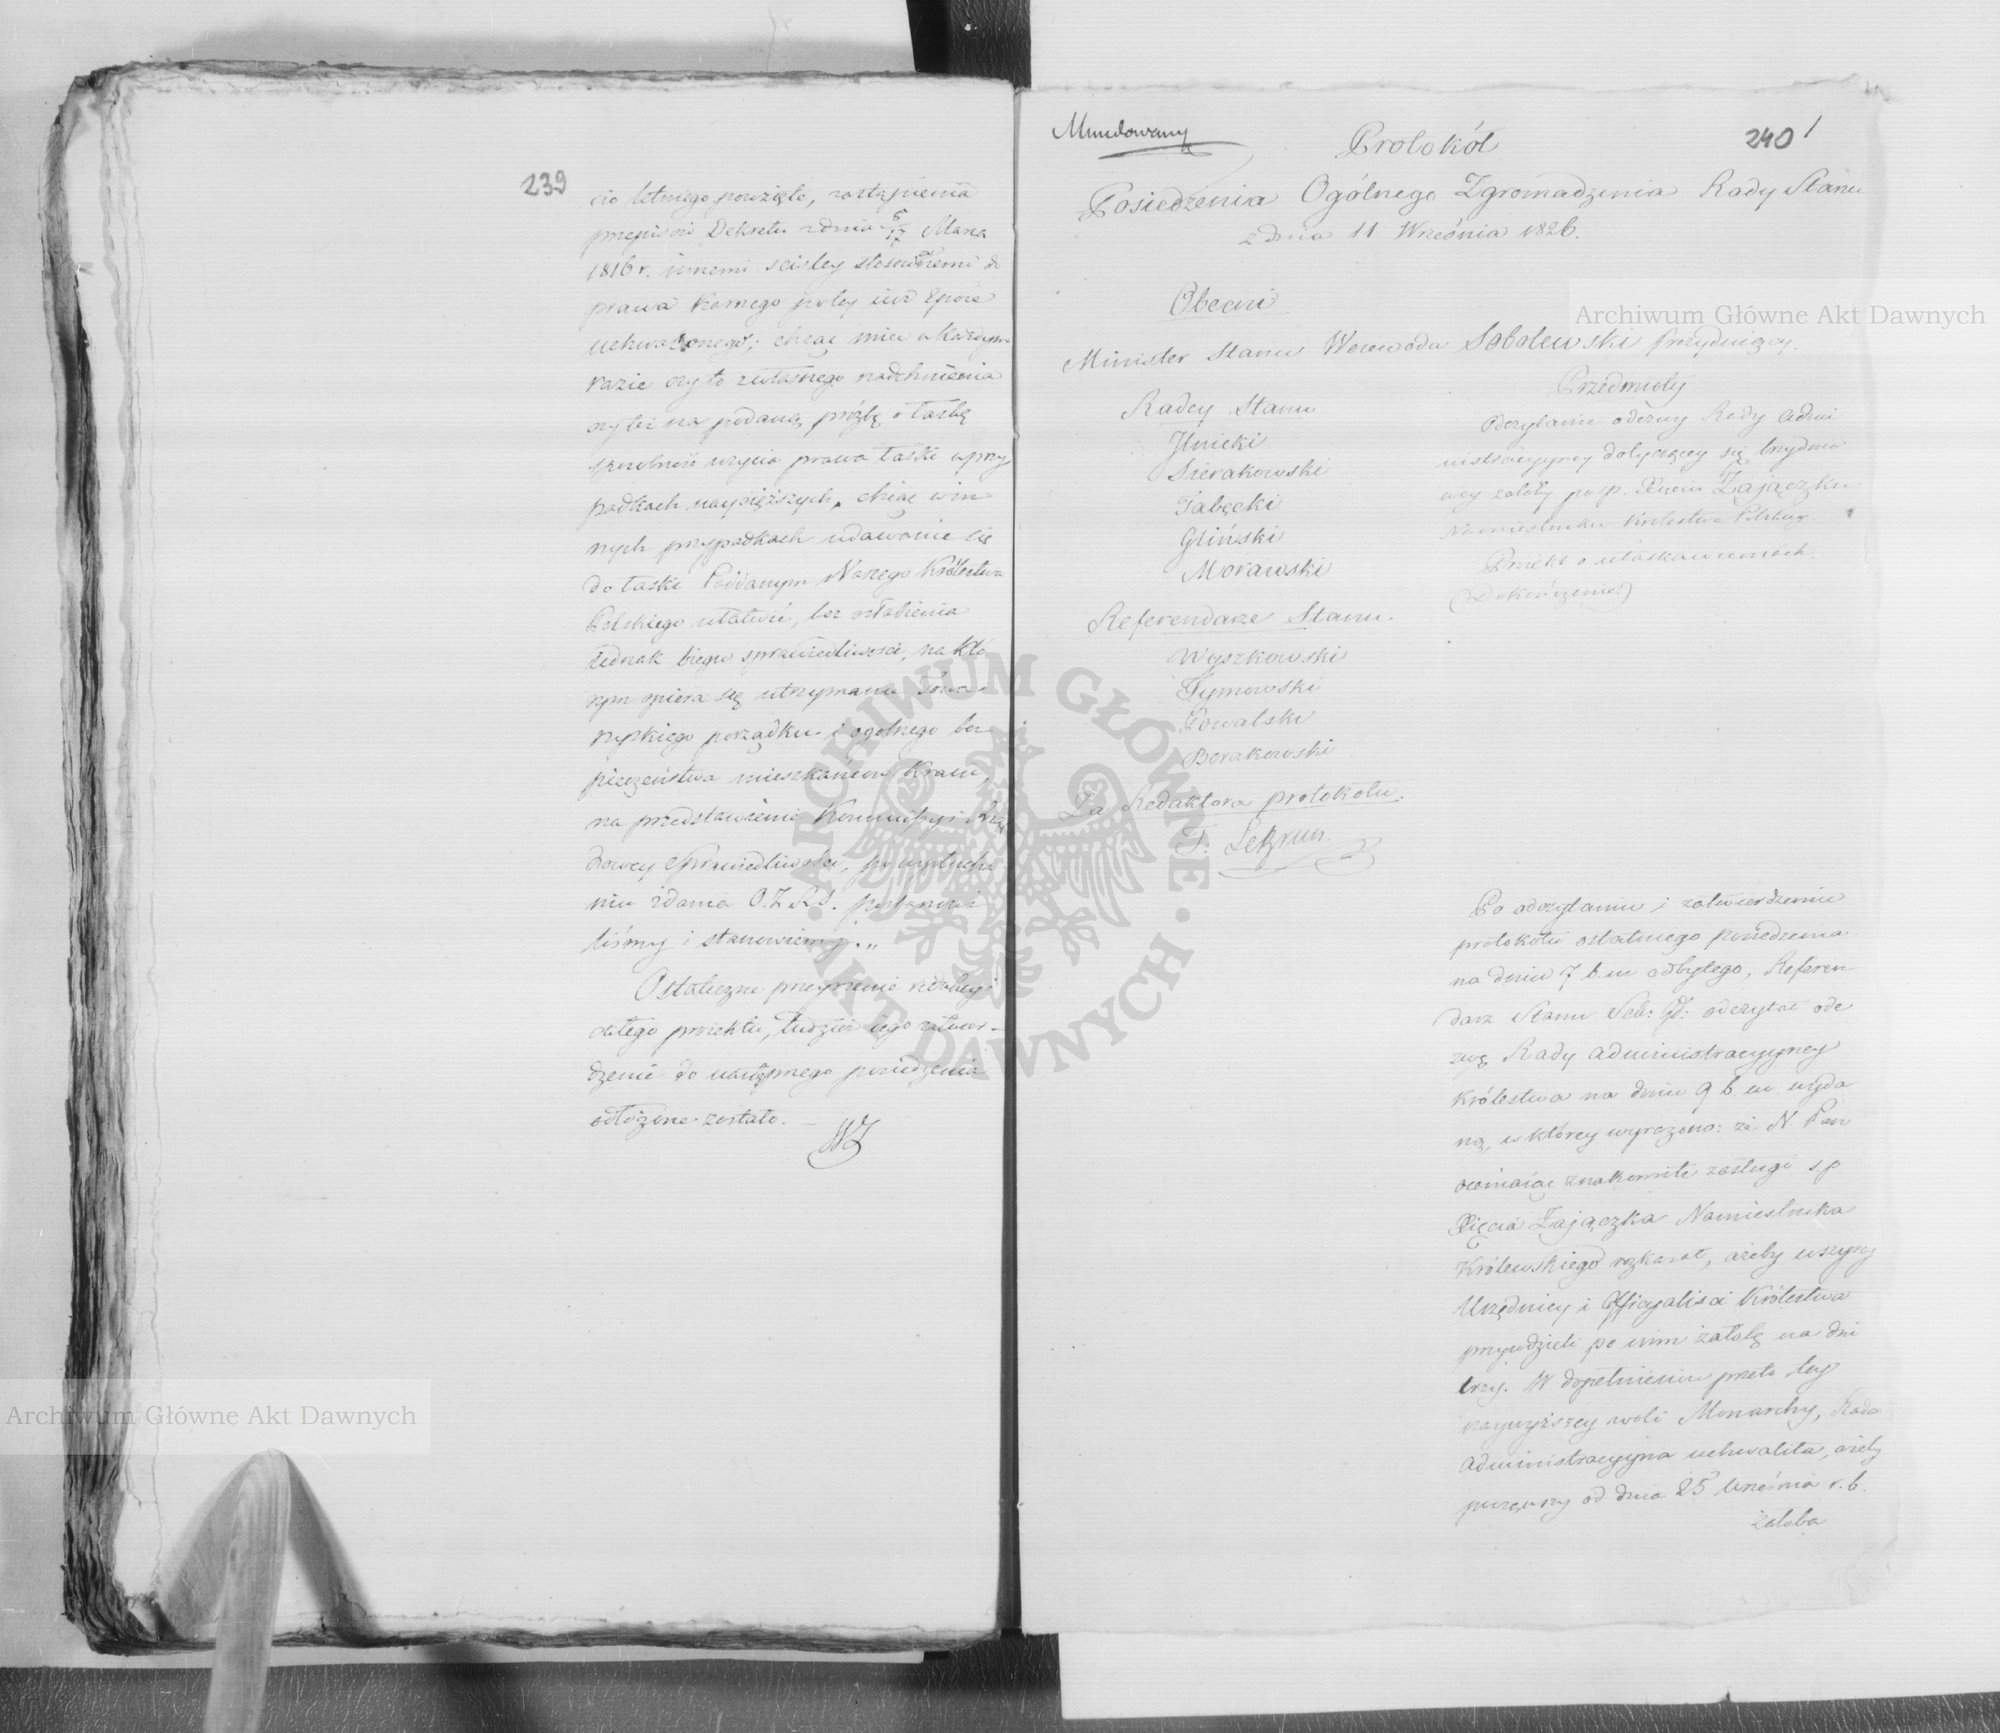 239
cio letniego powzięte, zastąpienia
przepisów Dekretu z dnia 5/17 Marca
1816 r. innemi scisley stosownemi do
prawa Karnego poźey iuż
uchwalonego; chcąc mieć w każdym
razie czy to z własnego natchnienia
czyteż na podaną prózbę o łaskę
sposobność użycia prawa łaski w przy
padkach naycięższych, chcąc w in
nych przypadkach udawanie się
do łaski Poddanym Naszego Królestwa
Polskiego ułatwić, bez osłabienia
iednak biegu sprawiedliwości, na któ
rym opiera się utrzymanie Towa-
rzyskiego porządku i ogolnego bez
pieczeństwa mieszkańców Kraiu,
na przedstawienie Kommissyi Rzą
dowey Sprawiedliwości, po wysłucha
niu zdania O.Z.R.S. postanowi
liśmy i stanowiemy."
Ostateczne przeyrzenie redakcyi
całego proiektu, tudzież iego zatwier-
dzenie do następnego posiedzenia
odłożone zostało. –
Mundowany
240
Protokół
Posiedzenia Ogólnego Zgromadzenia Rady Stanu
z dnia 11 Września 1826.
Obecni
Minister Stanu Woiewoda Sobolewski Prezyduiący.
Radcy Stanu
Ilnicki
Sierakowski
Tabęcki
Gliński
Morawski
Referendarze Stanu.
Wyszkowski
Tymowski
Kowalski
Borakowski
Za Redaktora protokołu.
T. Lekzun.
Przedmioty
Odczytanie odezwy Rady Admi
nistracyyney dotyczącey się trzydnio
wey żałoby po śp. Xięciu Zajączku
Namiestniku Królestwa Polskiego.
Proiekt o ułaskawieniach.
(Dokończenie)
Po odczytaniu i zatwierdzeniu
protokołu ostatniego posiedzenia
na dniu 7 b. m odbytego, Referen
darz Stanu Sek: Gł: odczytał ode
zwę Rady Administracyyney
Królestwa na dniu 9 b. m. wyda
ną, w którey wyrażono: że N. Pan
oceniaiąc znakomite zasługi s.p.
Xięcia Zajączka Namiestnika
Królewskiego rozkazał, ażeby wszyscy
Urzędnicy i Officyaliści Królestwa
przywdzieli po nim żałobę na dni
trzy. W dopełnieniu przeto tey
naywyższey woli Monarchy, Rada
Administracyyna uchwaliła, ażeby
począwszy od dnia 25 Września r. b.
żałoba
Archiwum Główne Akt Dawnych
Archiwum Główne Akt Dawnych
ARCHIWUM GŁÓWNE
AKT DAWNYCH